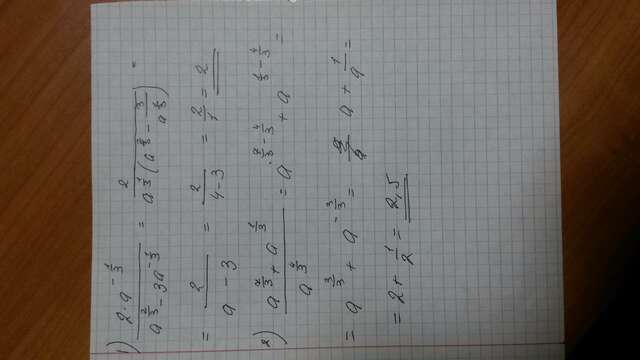 1) \frac{2·a^{-\frac{1}{3}}}{a^{\frac{2}{3}} - 3a^{-\frac{1}{3}}} = \frac{2}{a^{\frac{1}{3}}(a^{\frac{2}{3}} - \frac{3}{a^{\frac{1}{3}}})} =
= \frac{2}{a - 3} = \frac{2}{4 - 3} = \frac{2}{1} = 2
2) \frac{a^{\frac{7}{3}} + a^{\frac{1}{3}}}{a^{\frac{4}{3}}} = a^{\frac{7}{3} - \frac{4}{3}} + a^{\frac{1}{3} - \frac{4}{3}} =
= a^{\frac{3}{3}} + a^{-\frac{3}{3}} = a + \frac{1}{a} =
= 2 + \frac{1}{2} = 2,5